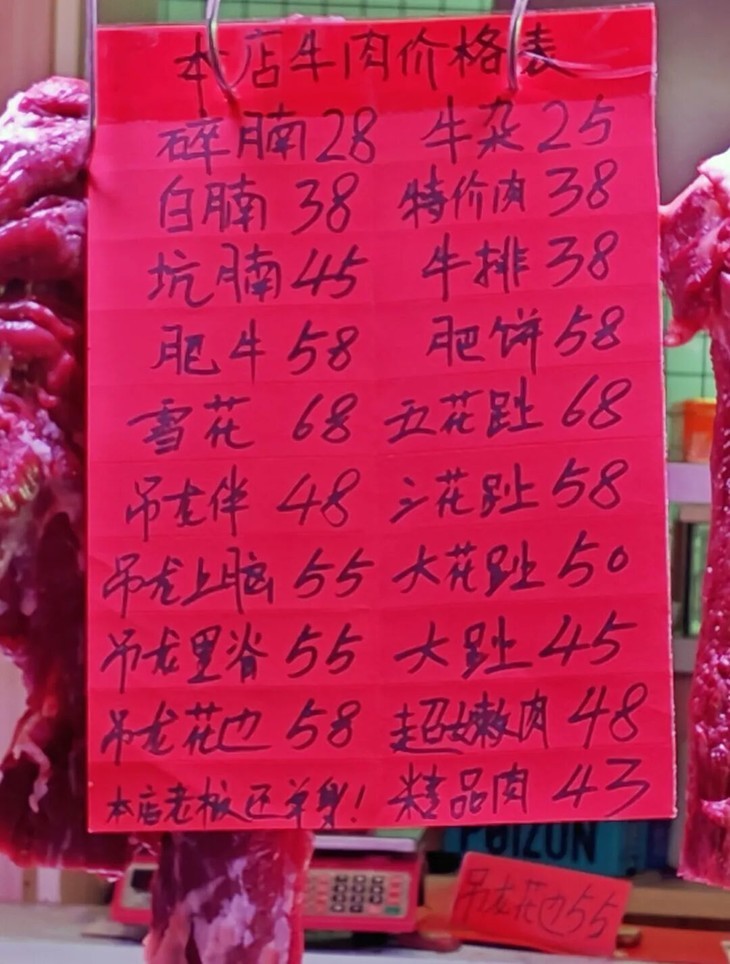 本店牛肉价格表
碎腩28 牛杂25
白腩 38 特价肉38
坑腩45 牛排38
肥牛 58 肥饼58
雪花 68 五花趾68
吊龙伴 48 三花趾58
吊龙上脑 55 大花趾50
吊龙里脊 55 大趾45
吊龙花边 58 超级嫩肉48
本店老板还单身! 精品肉43
POIZON
吊龙花边55